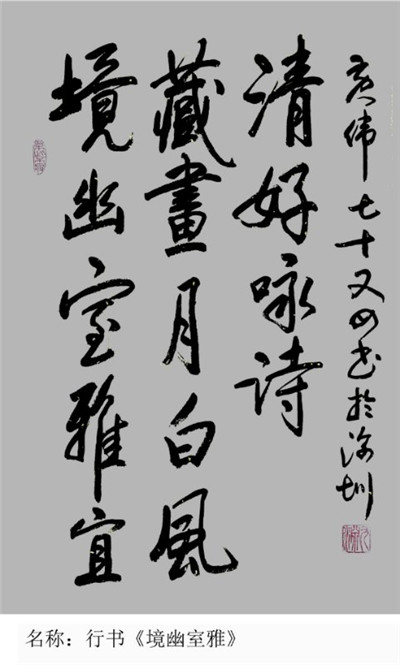 境幽室雅宜
藏畫月白風
清好咏诗
伟七十又四书於深圳
名称：行书《境幽室雅》